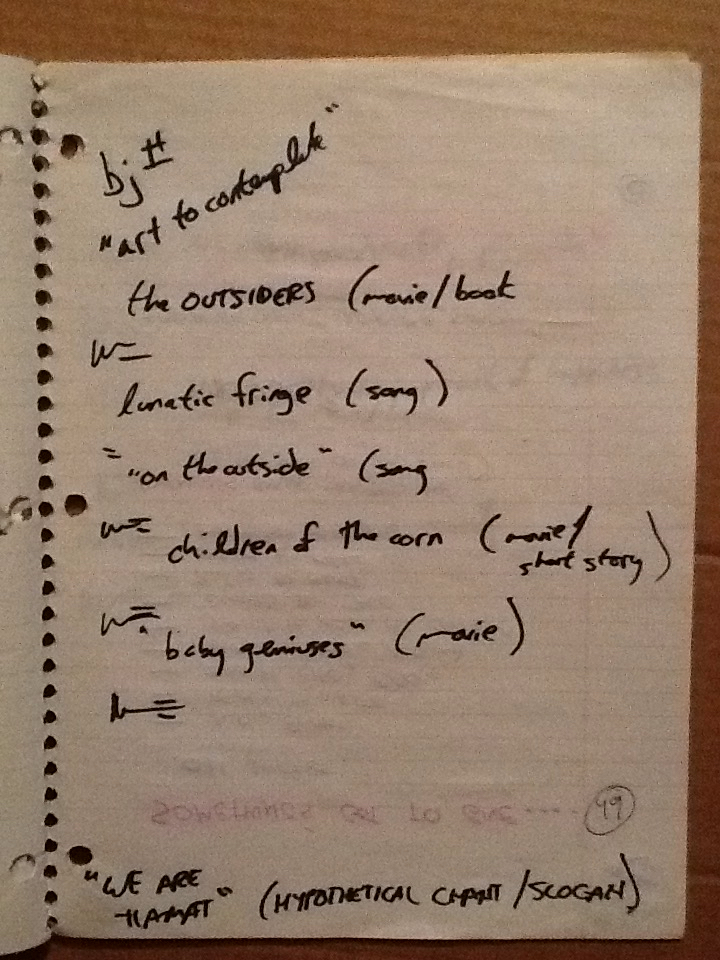 bj
"art to contemplate"
the OUTSIDERS (movie/book
lunatic fringe (song)
"on the outside" (song
children of the corn (movie/
short story)
"baby geniuses" (movie)
49
"WE ARE
HAMAT" (HYPOTHETICAL CHANT/SLOGAN)